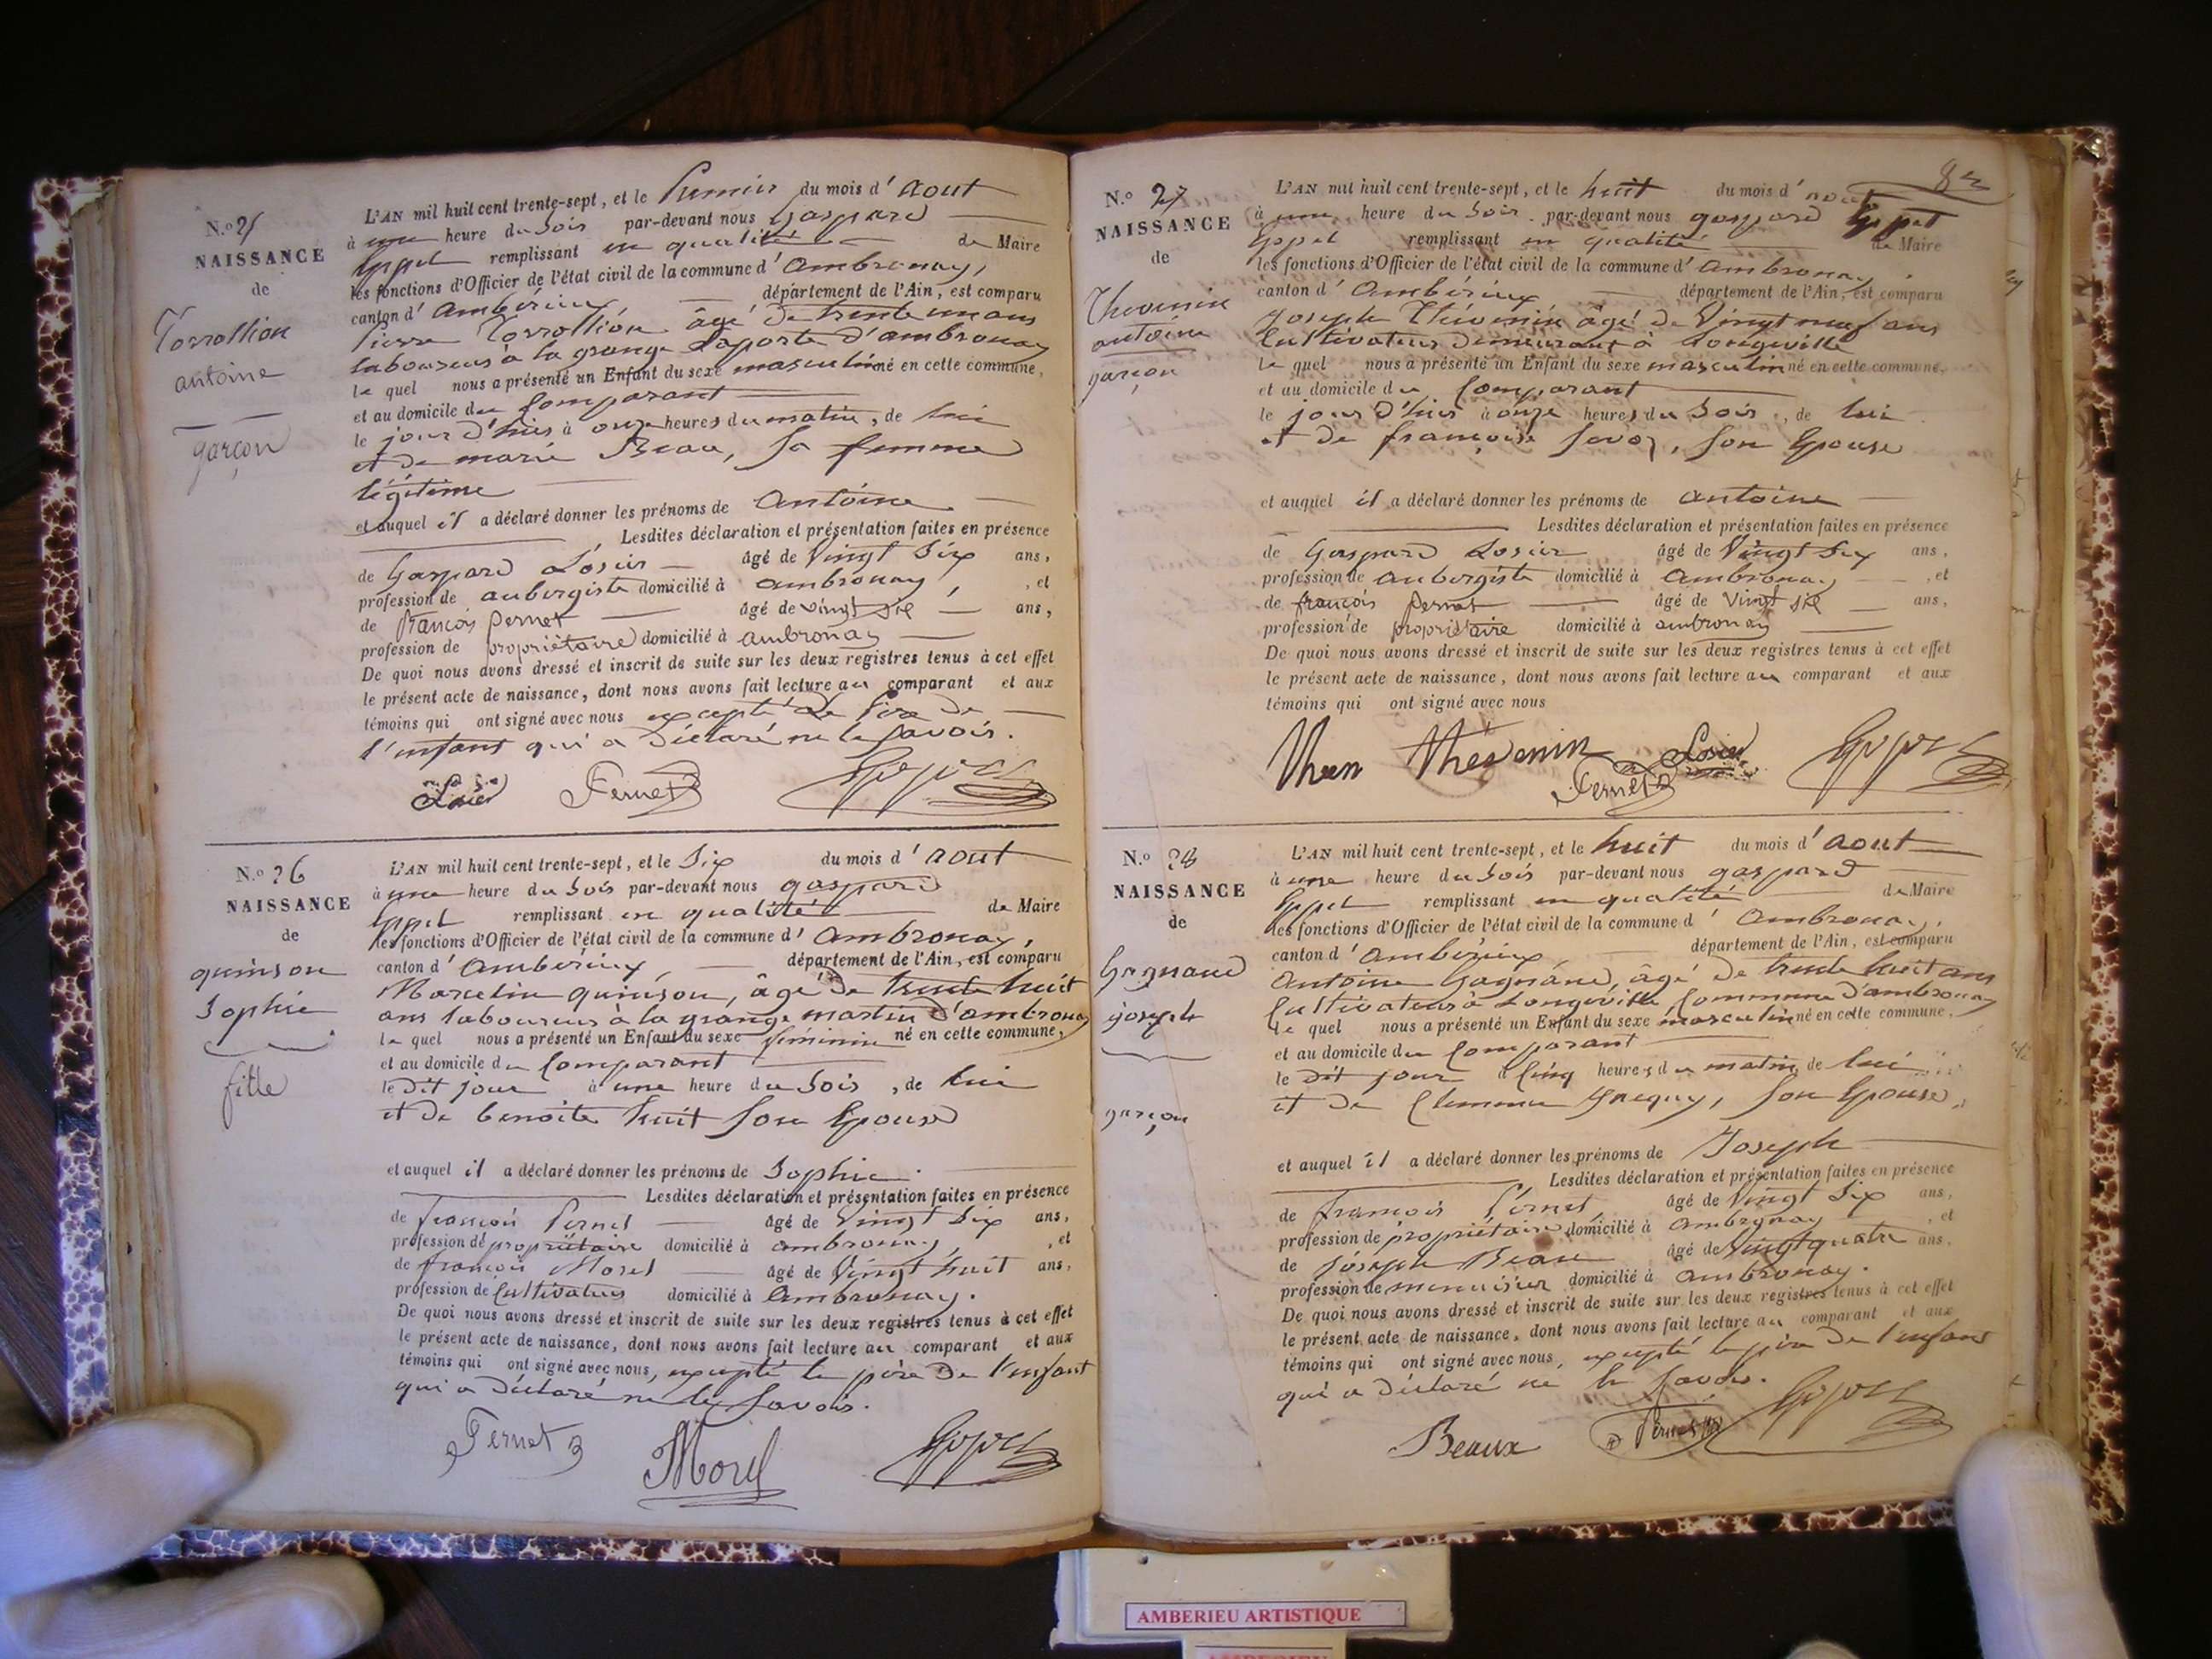 N.o 25
NAISSANCE
de
Torrollion
antoine
garçon
L'AN mil huit cent trente-sept, et le Premier du mois d'aout
à une heure du soir par-devant nous gaspard
remplissant en qualité de Maire
les fonctions d'Officier de l'état civil de la commune d'ambronay,
canton d'ambérieux département de l'Ain, est comparu
Pierre Torrollion âgé de trente un ans
laboureur à la grange Laporte d'ambronay
le quel nous a présenté un Enfant du sexe masculin né en cette commune,
et au domicile du Comparant
le jour d'hier à onze heures du matin, de lui
et de marie Beau, sa femme
légitime
et auquel il a déclaré donner les prénoms de antoine
Lesdites déclaration et présentation faites en présence
de Gaspard Losier âgé de Vingt Six ans,
profession de aubergiste domicilié à ambronay, et
de François Pernet âgé de vingt six ans,
profession de propriétaire domicilié à ambronay
De quoi nous avons dressé et inscrit de suite sur les deux registres tenus à cet effet
le présent acte de naissance, dont nous avons fait lecture au comparant et aux
témoins qui ont signé avec nous excepté le père de
l'enfant qui a déclaré ne le savoir.
Losier Pernet
N.o 26
NAISSANCE
de
quinson
Sophie
fille
L'AN mil huit cent trente-sept, et le Six du mois d'aout
à une heure du soir par-devant nous gaspard
remplissant en qualité de Maire
les fonctions d'Officier de l'état civil de la commune d'ambronay,
canton d'ambérieux, département de l'Ain, est comparu
Marcelin quinson, âgé de trente huit
ans laboureur à la grange martin d'ambronay
le quel nous a présenté un Enfant du sexe féminin né en cette commune,
et au domicile du Comparant
le dit jour à une heure du soir, de lui
et de benoite huit son Epouse
et auquel il a déclaré donner les prénoms de Sophie.
Lesdites déclaration et présentation faites en présence
de françois Pernet âgé de Vingt Six ans,
profession de propriétaire domicilié à ambronay, et
de françois Morel âgé de Vingt huit ans,
profession de Cultivateur domicilié à Ambronay.
De quoi nous avons dressé et inscrit de suite sur les deux registres tenus à cet effet
le présent acte de naissance, dont nous avons fait lecture au comparant et aux
témoins qui ont signé avec nous, excepté le père de l'enfant
qui a déclaré ne le savoir.
Pernet Morel
82
N.o 27
NAISSANCE
de
Thevenin
antoine
garçon
L'AN mil huit cent trente-sept, et le huit du mois d'aout
à une heure du soir par-devant nous gaspard
remplissant en qualité de Maire
les fonctions d'Officier de l'état civil de la commune d'ambronay,
canton d'Ambérieux département de l'Ain, est comparu
Joseph Thévenin âgé de Vingt neuf ans
Cultivateur demeurant à Longeville
le quel nous a présenté un Enfant du sexe masculin né en cette commune,
et au domicile du Comparant
le jour d'hier à onze heures du soir, de lui
et de françoise Savoy, son Epouse
et auquel il a déclaré donner les prénoms de antoine
Lesdites déclaration et présentation faites en présence
de Gaspard Losier âgé de Vingt Six ans,
profession de aubergiste domicilié à Ambronay, et
de françois Pernet âgé de Vingt six ans,
profession de propriétaire domicilié à ambronay
De quoi nous avons dressé et inscrit de suite sur les deux registres tenus à cet effet
le présent acte de naissance, dont nous avons fait lecture au comparant et aux
témoins qui ont signé avec nous
Thevenin Pernet Losier
N.o 28
NAISSANCE
de
Gagnand
joseph
garçon
L'AN mil huit cent trente-sept, et le huit du mois d'aout
à une heure du soir par-devant nous gaspard
remplissant en qualité de Maire
les fonctions d'Officier de l'état civil de la commune d'Ambronay,
canton d'Ambérieux département de l'Ain, est comparu
Antoine Gagnand, âgé de trente huit ans
Cultivateur à Longeville Commune d'ambronay
le quel nous a présenté un Enfant du sexe masculin né en cette commune,
et au domicile du Comparant
le dit jour à Cinq heures du matin, de lui
et de son Epouse,
et auquel il a déclaré donner les prénoms de Joseph
Lesdites déclaration et présentation faites en présence
de françois Pernet, âgé de Vingt Six ans,
profession de propriétaire domicilié à Ambronay, et
de Joseph Beau âgé de Vingt quatre ans,
profession de menuisier domicilié à Ambronay.
De quoi nous avons dressé et inscrit de suite sur les deux registres tenus à cet effet
le présent acte de naissance, dont nous avons fait lecture au comparant et aux
témoins qui ont signé avec nous, excepté le père de l'enfant
qui a déclaré ne le savoir.
Beaux Pernet
AMBERIEU ARTISTIQUE